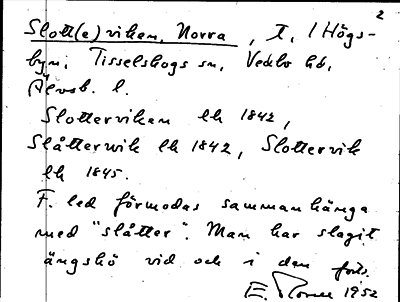 2
Slott(e)viken, Norra, t. l Högs-
byn, Tisselskogs sn, Vedbo hd,
Älvsb. l.
Slotterviken lk 1842,
Slåtterwik lk 1842, Slottervik
lk 1845.
F. led förmodas sammanhänga
med "slåtter". Man har slagit
ängshö vid och i den
E. 1952